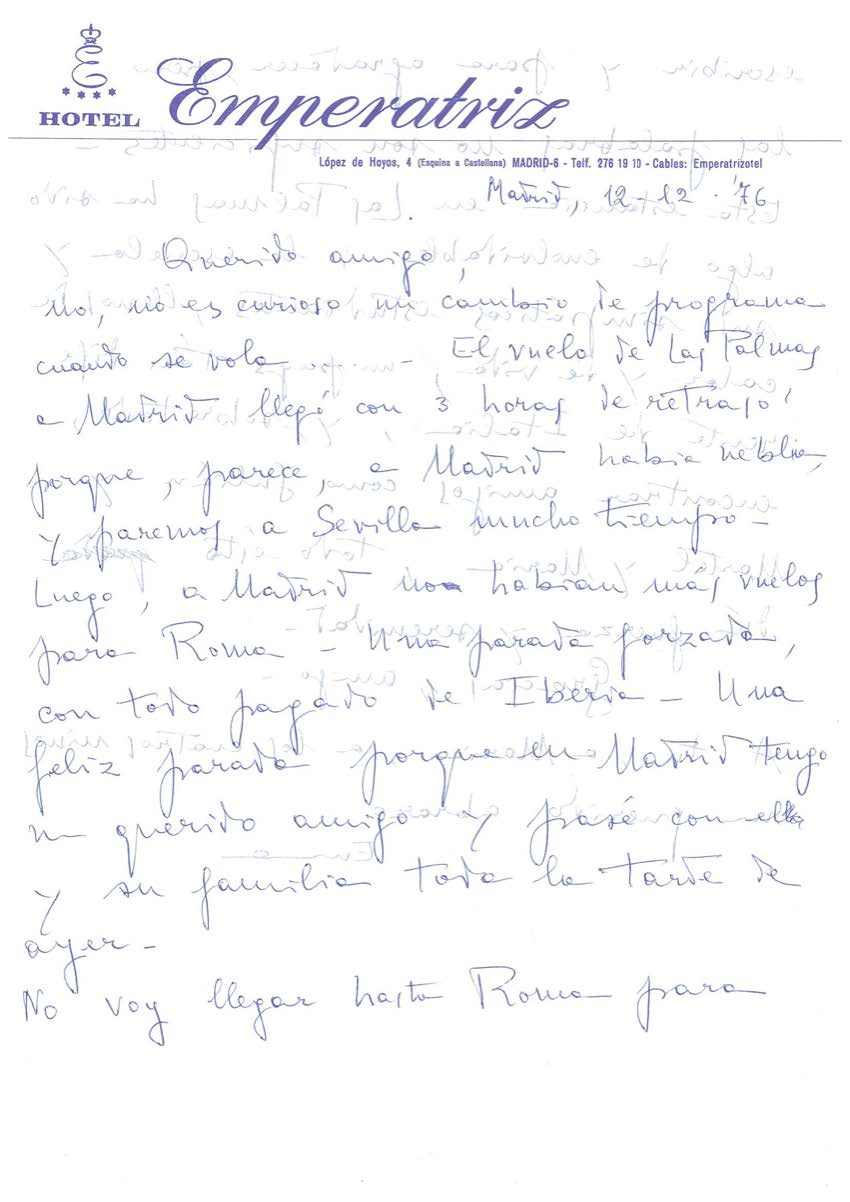 HOTEL Emperatriz
López de Hoyos, 4 (Esquina a Castellana) MADRID-6 - Telf. 276 19 10 - Cables: Emperatrizotel
Madrid, 12-12-'76
Querido amigo,
no, no es curioso mi cambio de programa
cuando se vola - El vuelo de Las Palmas
a Madrid llegó con 3 horas de retraso,
porque, parece, a Madrid habia neblia,
y paremos a Sevilla mucho tiempo -
Luego, a Madrid no habian mas vuelos
para Roma - Una parada forzada,
con todo pagado de Iberia - Una
feliz parada porque en Madrid tengo
un querido amigo y pasé con el
y su familia toda la tarde de
ayer -
No voy llegar hasta Roma para